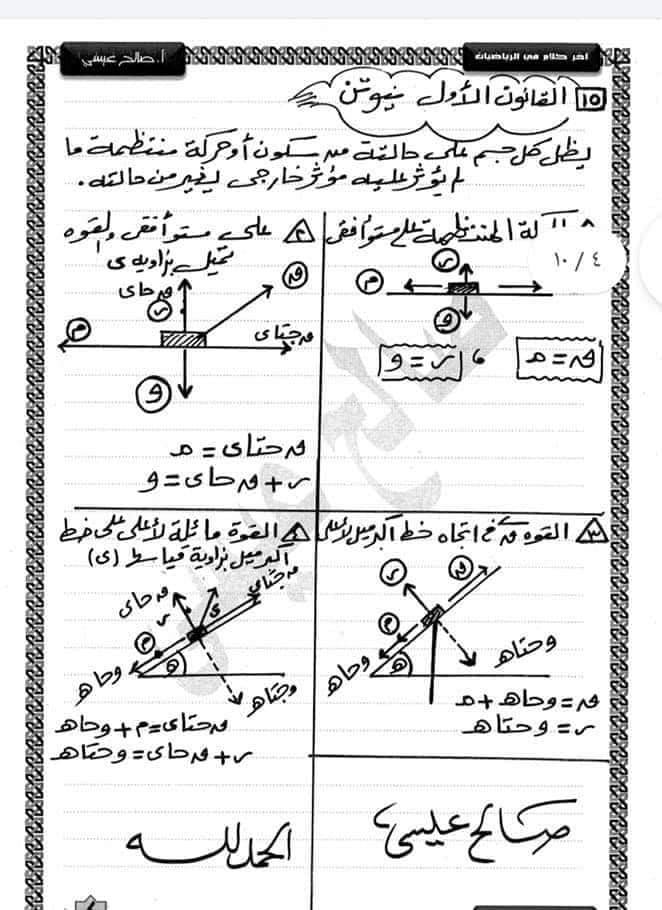 أ. صالح عيسى
آخر كلام في الرياضيات
١٥ القانون الأول نيوتن
يظل كل جسم على حالته من سكون أو حركة منتظمة ما
لم يؤثر عليه مؤثر خارجى يغير من حالته.
كة المنتظمة على مستو أفقى
١٠ / ٤
ر
م
و
ق = م ، ر = و
٢ على مستو أفقى والقوه
تميل بزاويه ى
ق حاى
ق
ر
م
ق حتاى
و
ق حتاى = م
ر + ق حاى = و
٣ القوه ق فى اتجاه خط أكبر ميل لأعلى
ر
ق
م
و حاه
ه
و حتاه
ق = و حاه + م
ر = و حتاه
٤ القوة مائلة لأعلى على خط
أكبر ميل بزاوية قياسها (ى)
ق حتاى
ق حاى
ر
ى
م
و حاه
ه
و حتاه
ق حتاى = م + و حاه
ر + ق حاى = و حتاه
صالح عيسى
الحمد لله